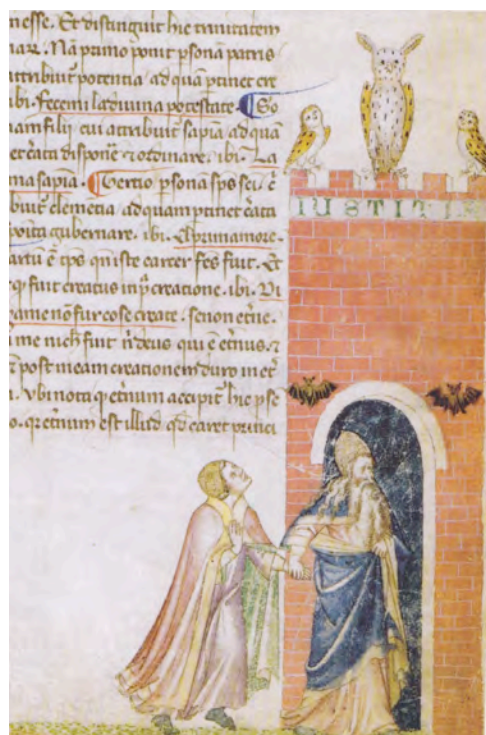 nesse. Et distinguit hic trinitatem
naꝝ. Nā primo ponit psonā patris
attribuit potentia ad quā ptinet cre
ibi. fecemi la divina potestate. So
nam filij cui attribuit sapiā ad quā
et cāta disponē ⁊ ordinare. ibi. La
ma sapiā. Tertio psonā sps sci. ē
ibuit clemētia ad quam ptinet cāta
gubernare. ibi. El primo amore.
artu ē cps qn iste carcer fcs fuit. Et
q fuit creatus in pͥ creatione. ibi. Di
çame nō fur cose create. senon etne.
i me nich fuit n deus qui ē etnus. ⁊
post meam creationem duro in et
. Ubi nota q etnum accipit hic p se
o. qr etnum est illud qd caret princi
IUSTITIA